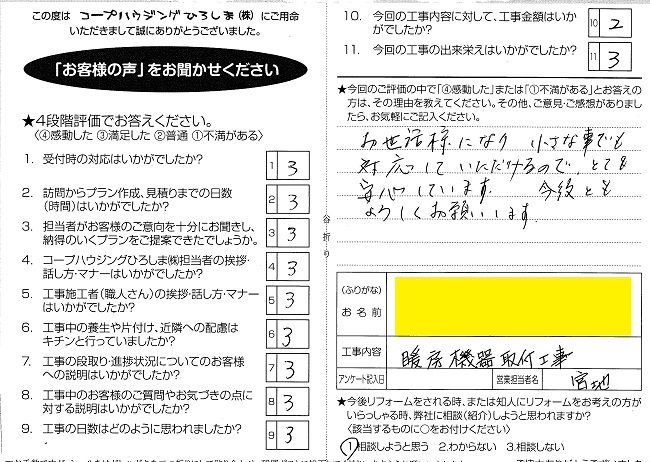 この度は コープハウジングひろしま(株) にご用命
いただきまして誠にありがとうございました。
「お客様の声」をお聞かせください
★4段階評価でお答えください。
〈④感動した ③満足した ②普通 ①不満がある〉
1. 受付時の対応はいかがでしたか? 1 3
2. 訪問からプラン作成、見積りまでの日数
(時間)はいかがでしたか? 2 3
3. 担当者がお客様のご意向を十分にお聞きし、
納得のいくプランをご提案できたでしょうか。 3 3
4. コープハウジングひろしま㈱担当者の挨拶・
話し方・マナーはいかがでしたか? 4 3
5. 工事施工者(職人さん)の挨拶・話し方・マナー
はいかがでしたか? 5 3
6. 工事中の養生や片付け、近隣への配慮は
キチンと行っていましたか? 6 3
7. 工事の段取り・進捗状況についてのお客様
への説明はいかがでしたか? 7 3
8. 工事中のお客様のご質問やお気づきの点に
対する説明はいかがでしたか? 8 3
9. 工事の日数はどのように思われましたか? 9 3
谷折り
10. 今回の工事内容に対して、工事金額はいか
がでしたか? 10 2
11. 今回の工事の出来栄えはいかがでしたか? 11 3
★今回のご評価の中で「④感動した」または「①不満がある」とお答えの
方は、その理由を教えてください。その他、ご意見・ご感想がありまし
たら、お気軽にご記入ください。
お世話様になり 小さな事でも
対応していただけるので、とても
安心しています。 今後とも
よろしくお願いします。
(ふりがな)
お名前
工事内容 暖房機器取付工事
アンケート記入日 営業担当者名 宮地
★今後リフォームをされる時、または知人にリフォームをお考えの方が
いらっしゃる時、弊社に相談(紹介)しようと思われますか?
〈該当するものに○をお付けください〉
1.相談しようと思う 2.わからない 3.相談しない